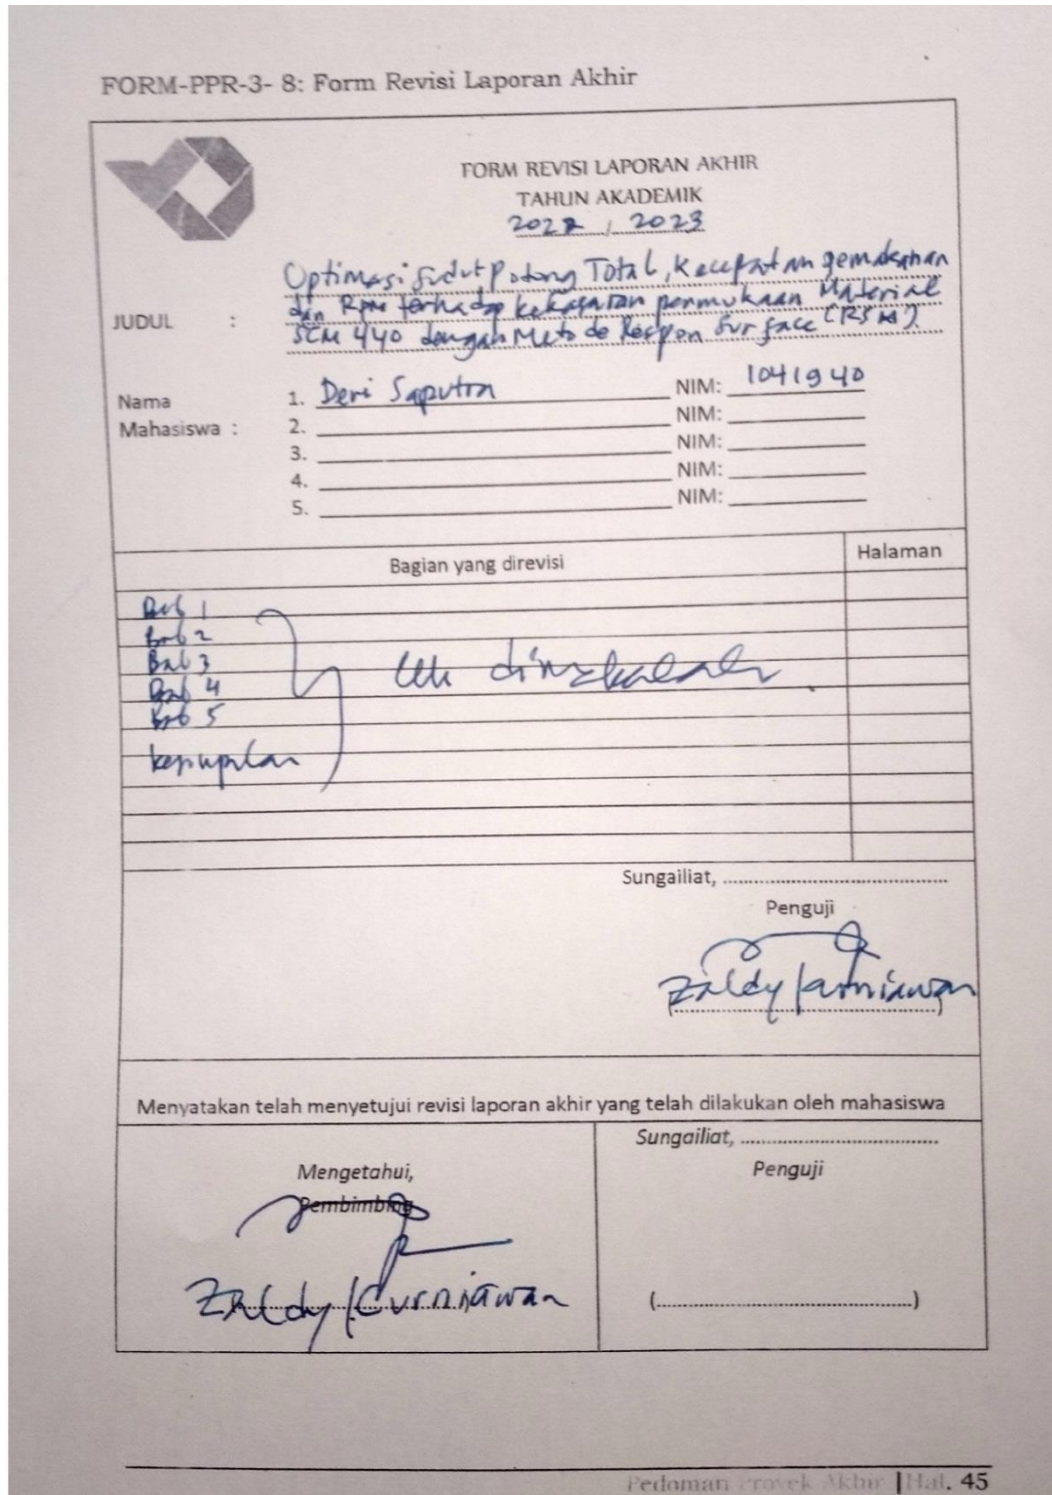 FORM-PPR-3- 8: Form Revisi Laporan Akhir
FORM REVISI LAPORAN AKHIR
TAHUN AKADEMIK
2022 / 2023
JUDUL : Optimasi Sudut Potong Total, Kecepatan pemakanan
dan Rpm terhadap kekasaran permukaan Material
SCM 440 dengan Metode Respon Surface (RSM).
Nama
Mahasiswa :
1. Deri Saputra NIM: 1041940
2. NIM:
3. NIM:
4. NIM:
5. NIM:
Bagian yang direvisi Halaman
Bab 1
Bab 2
Bab 3
Bab 4
Bab 5
kesimpulan
Sungailiat, ..........................................
Penguji
Zaldy Kurniawan
Menyatakan telah menyetujui revisi laporan akhir yang telah dilakukan oleh mahasiswa
Mengetahui,
Pembimbing
Zaldy Kurniawan
Sungailiat, .....................................
Penguji
(................................................)
Pedoman Proyek Akhir | Hal. 45